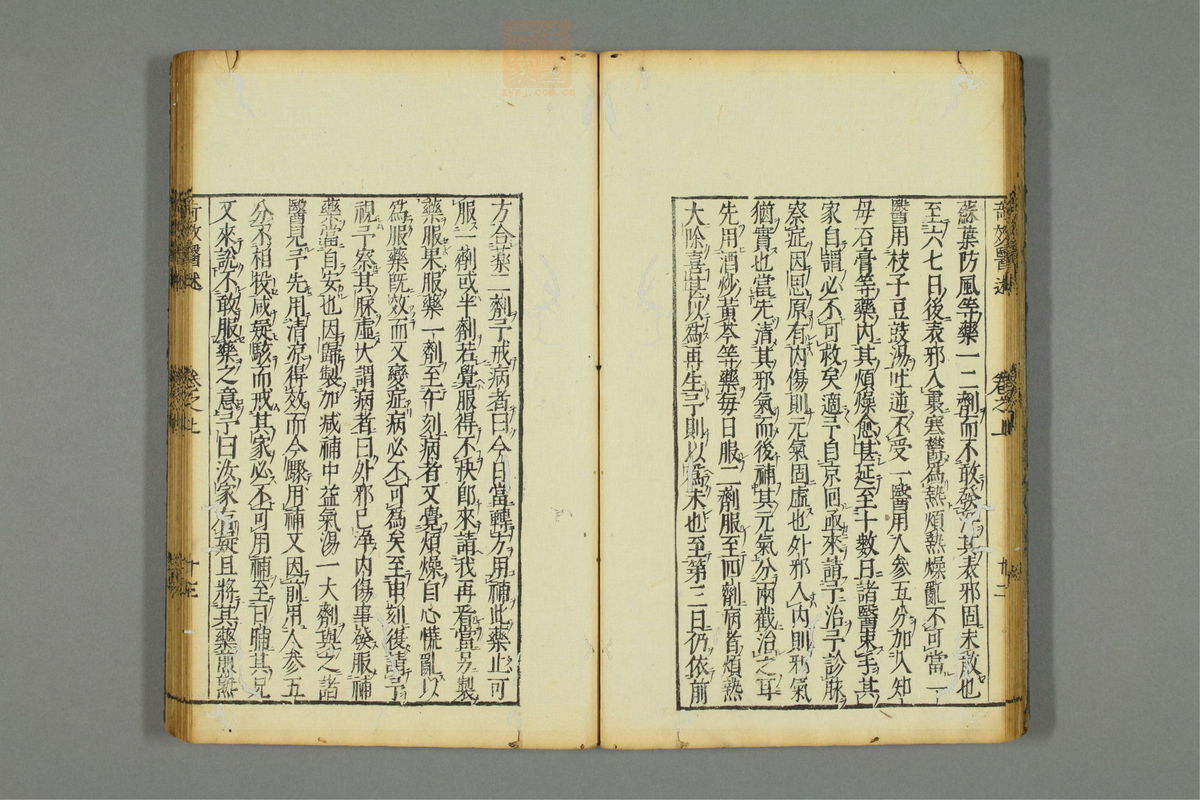 奇效醫述　卷之上　廿二
蘇葉防風等藥一二劑而不敢發汗其表邪固未散也
至六七日後表邪入裏寒鬱爲熱煩熱燥亂不可當一
醫用枝子豆豉湯吐逆不受一醫用人參五分加入知
母石膏等藥內其煩燥愈甚延至十數日諸醫束手其
家自謂必不可救矣適予自京回亟來請予治予診脉
察症因思原有內傷則元氣固虛也外邪入內則邪氣
猶實也當先清其邪氣而後補其元氣分兩截治之耳
先用酒炒黃芩等藥每日服二劑服至四劑病者煩熱
大除喜甚以爲再生予則以爲未也至第三日仍依前
方合藥二劑予戒病者曰今日當轉方用補此藥止可
服一劑或半劑若覺服得不快郎來請我再看當另製
藥服果服藥一劑至午刻病者又覺煩燥自心慌亂以
爲服藥既效而又變症病必不可爲矣至申刻復請予
視予察其脉虛大謂病者曰外邪已淨內傷事發服補
藥當自安也因歸製加減補中益氣湯一大劑與之諸
醫見予先用清凉得效而今驟用補又因前用人參五
分不相投咸疑駭而戒其家必不可用補至日晡其兄
又來說不敢服藥之意予曰汝家有疑且將其藥煎熟
奇效醫述　卷之上